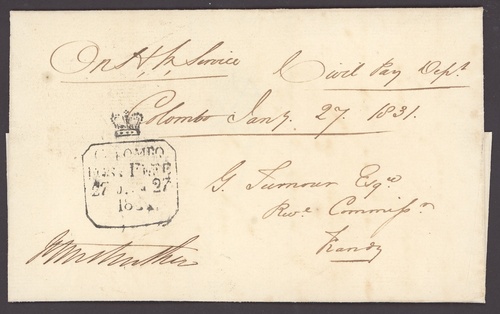 On H. M. Service
Civil Pay Dept
Colombo Jany. 27. 1831.
COLOMBO
POST FREE
27 JAN 27
1831
G. Turnour Esqre
Reve. Commissr
Kandy